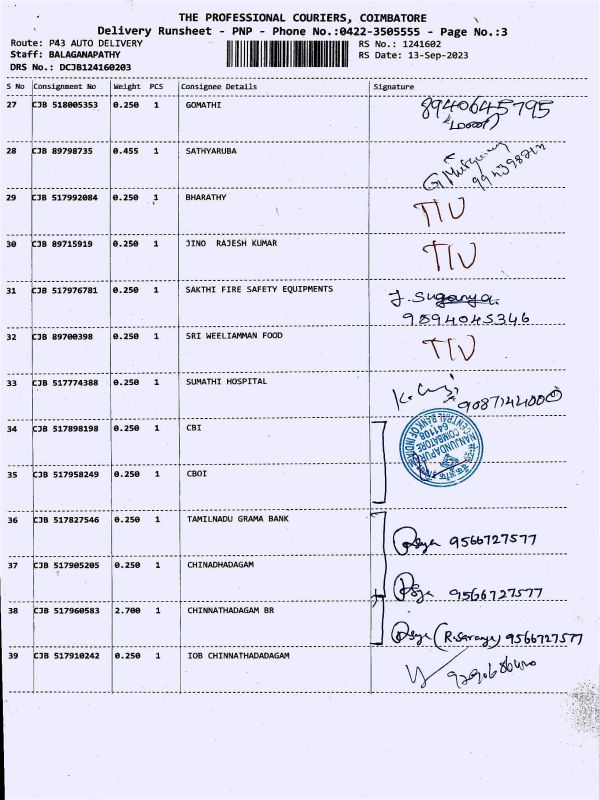 THE PROFESSIONAL COURIERS, COIMBATORE
Delivery Runsheet - PNP - Phone No.:0422-3505555 - Page No.:3
Route: P43 AUTO DELIVERY
RS No.: 1241602
Staff: BALAGANAPATHY
RS Date: 13-Sep-2023
DRS No.: DCJB124160203
S No Consignment No Weight PCS Consignee Details Signature
27 CJB 518005353 0.250 1 GOMATHI 8940645795
28 CJB 89798735 0.455 1 SATHYARUBA
29 CJB 517992084 0.250 1 BHARATHY TIU
30 CJB 89715919 0.250 1 JINO RAJESH KUMAR TIU
31 CJB 517976781 0.250 1 SAKTHI FIRE SAFETY EQUIPMENTS J. Suganya.
9894045346
32 CJB 89700398 0.250 1 SRI WEELIAMMAN FOOD TIU
33 CJB 517774388 0.250 1 SUMATHI HOSPITAL
34 CJB 517898198 0.250 1 CBI
CENTRAL BANK OF INDIA
NANJUNDAPURAM
COIMBATORE
641108
35 CJB 517958249 0.250 1 CBOI
36 CJB 517827546 0.250 1 TAMILNADU GRAMA BANK 9566727577
37 CJB 517905205 0.250 1 CHINADHADAGAM 9566727577
38 CJB 517960583 2.700 1 CHINNATHADAGAM BR (R.Saranya) 9566727577
39 CJB 517910242 0.250 1 IOB CHINNATHADADAGAM